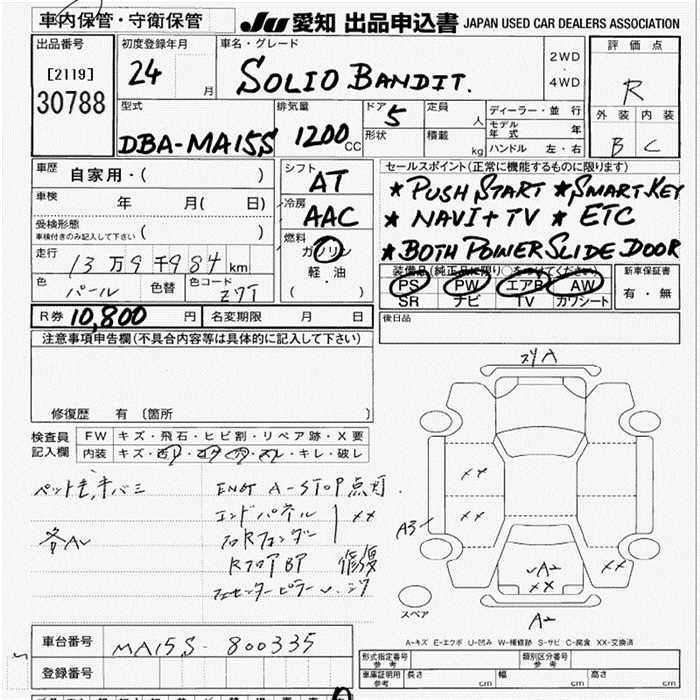 車内保管・守衛保管 JU 愛知 出品申込書 JAPAN USED CAR DEALERS ASSOCIATION
出品番号 初度登録年月 車名・グレード 2WD・4WD 評価点
[2119] 24 月 SOLIO BANDIT. R
30788
型式 排気量 ドア 定員 ディーラー・並行 外装 内装
DBA-MA15S 1200 CC 5 人 モデル年式 年 B C
形状 積載 kg ハンドル 左・右
車歴 自家用・( ) シフト AT セールスポイント(正常に機能するものに限ります)
車検 年 月( 日) 冷房 AAC ★PUSH START ★SMART KEY
受検形態 ( ) ★ NAVI+TV ★ ETC
車検付きのみ記入して下さい 燃料 ガソリン ★BOTH POWER SLIDE DOOR
走行 13万9千984km 軽・油
色 パール 色替 色コード Z7T ( )
装備品(純正品に限り○をつけてください) 新車保証書
PS PW エアB AW 有・無
SR ナビ TV カワシート
R券 10,800 円 名変期限 月 日 後日品
注意事項申告欄(不具合内容等は具体的に記入して下さい)
修復歴 有 〔箇所 〕
検査員記入欄 FW キズ・飛石・ヒビ割・リペア跡・X要
内装 キズ・・・・・キレ・破レ
ENG A-STOP点灯.
エンドパネル XX
各AL
RフロアBP 修復
A3 XX
XX
XX
A2
XX
A2
スペア
A-キズ E-エクボ U-凹み W-補修跡 S-サビ C-腐食 XX-交換済
車台番号 MA15S-800335
登録番号
形式指定番号 参考 類別区分番号 参考
車庫証明用 参考 長さ cm 幅 cm 高さ cm